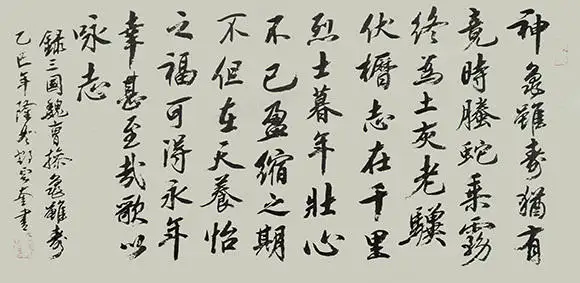 神龜雖壽猶有
竟時螣蛇乘霧
終為土灰老驥
伏櫪志在千里
烈士暮年壯心
不已盈縮之期
不但在天養怡
之福可得永年
幸甚至哉歌以
咏志
録三國魏曹操龜雖壽
乙巳年隆冬奎書